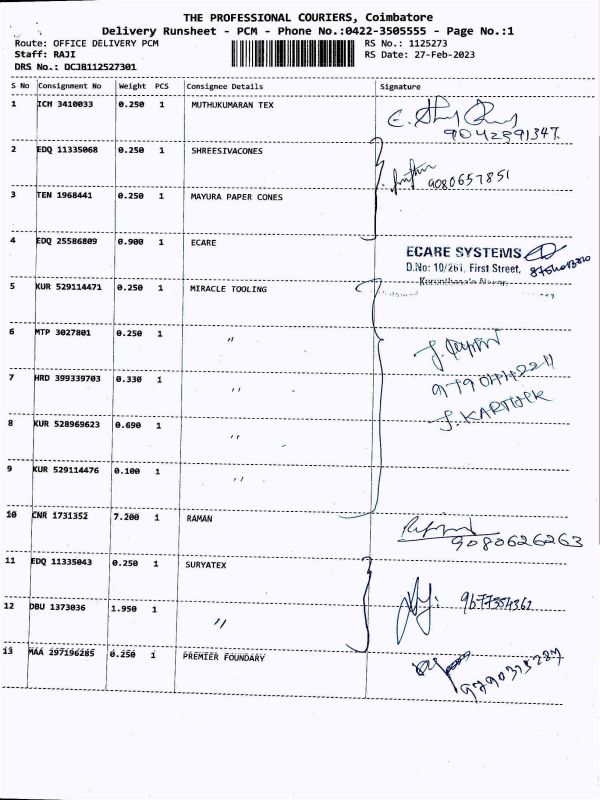 THE PROFESSIONAL COURIERS, Coimbatore
Delivery Runsheet - PCM - Phone No.:0422-3505555 - Page No.:1
Route: OFFICE DELIVERY PCM RS No.: 1125273
Staff: RAJI RS Date: 27-Feb-2023
DRS No.: DCJB112527301
S No Consignment No Weight PCS Consignee Details Signature
1 ICH 3410033 0.250 1 MUTHUKUMARAN TEX
9042391347.
2 EDQ 11335068 0.250 1 SHREESIVACONES
9080657851
3 TEN 1968441 0.250 1 MAYURA PAPER CONES
4 EDQ 25586809 0.900 1 ECARE
ECARE SYSTEMS
D.No: 10/261, First Street,
5 KUR 529114471 0.250 1 MIRACLE TOOLING
6 MTP 3027801 0.250 1 "
7 HRD 399339703 0.330 1 "
9790442211
J. KARTHICK
8 KUR 528969623 0.690 1 "
9 KUR 529114476 0.100 1 "
10 CNR 1731352 7.200 1 RAMAN
9080626263
11 EDQ 11335043 0.250 1 SURYATEX
12 DBU 1373036 1.950 1 "
13 MAA 297196285 0.250 1 PREMIER FOUNDARY
9790315287